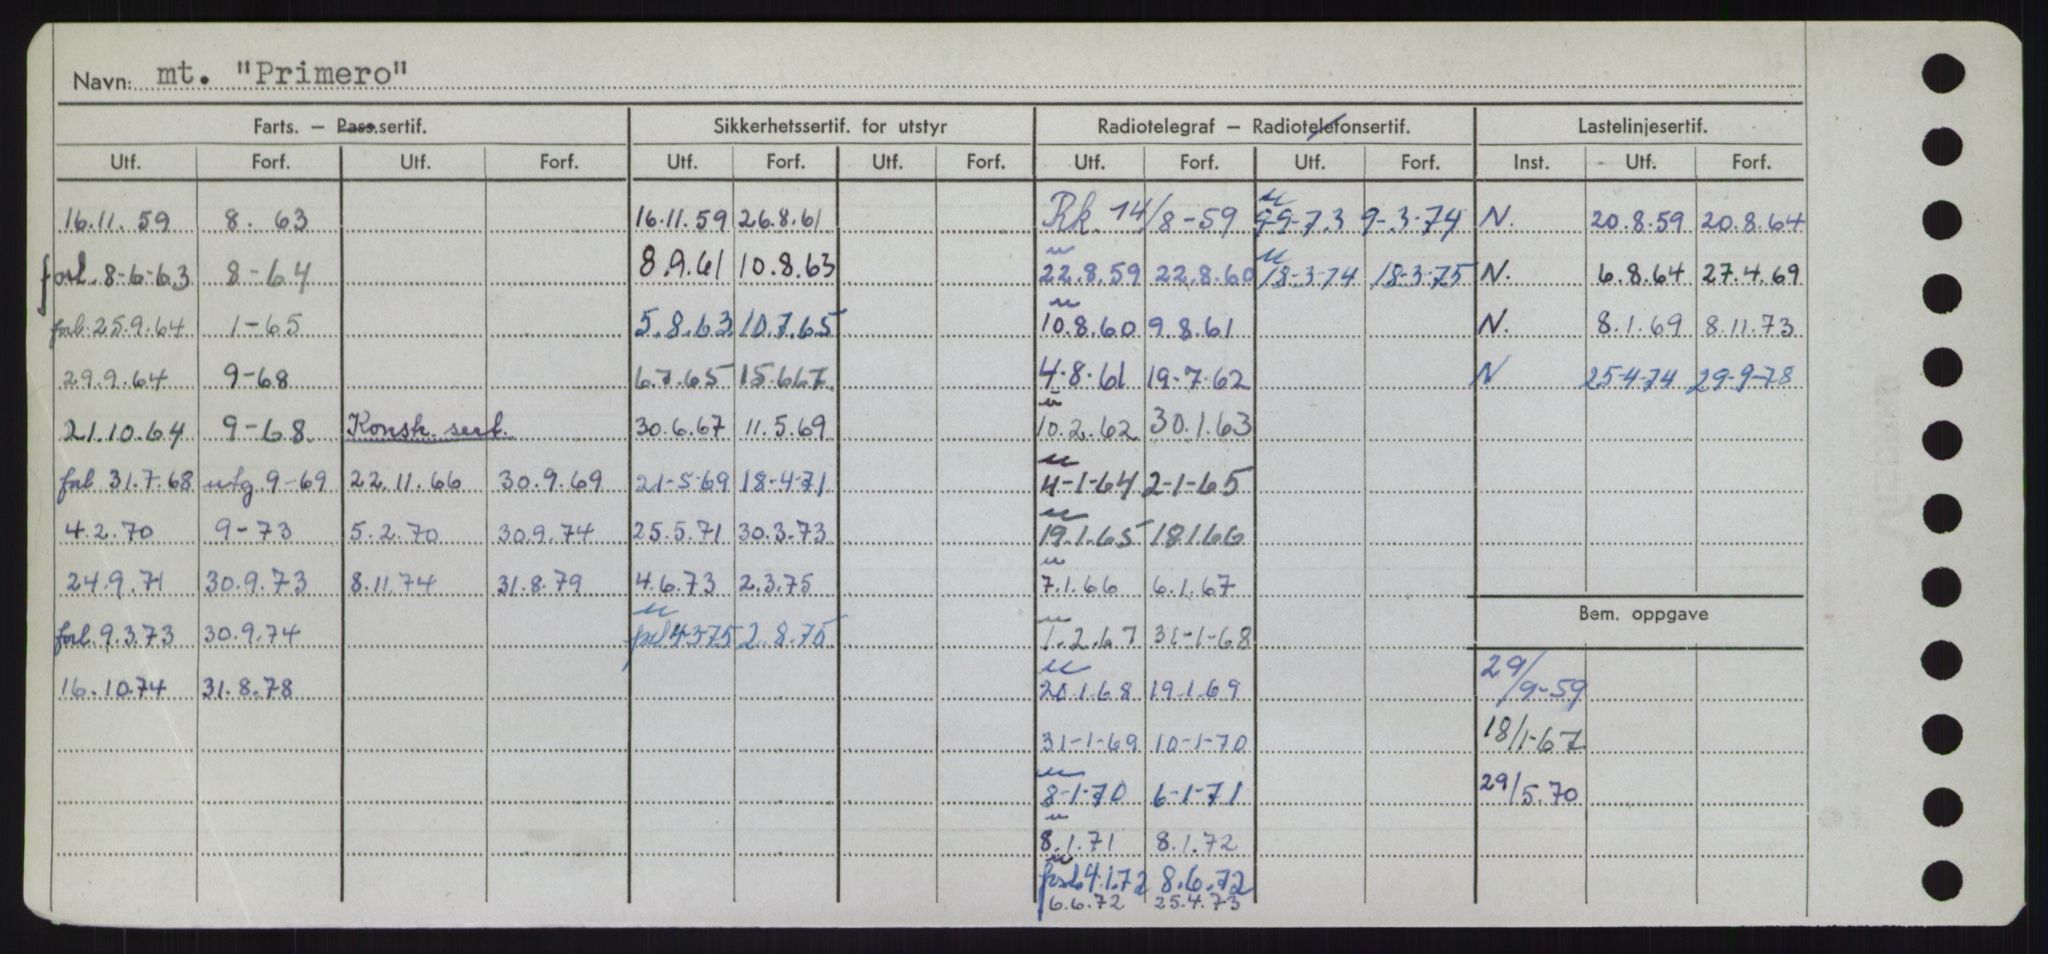 Navn: mt. "Primero"
Farts. – Pass.sertif. Sikkerhetssertif. for utstyr Radiotelegraf – Radiotelefonsertif. Lastelinjesertif.
Utf. Forf. Utf. Forf. Utf. Forf. Utf. Forf. Utf. Forf. Utf. Forf. Inst. Utf. Forf.
16.11.59 8. 63 16.11.59 26.8.61 Rk. 14/8-59 9-3-74 N. 20.8.59 20.8.64
forl. 8-6-63 8-64 8.9.61 10.8.63 u 22.8.59 22.8.60 u 18-3-74 18-3-75 N. 6.8.64 27.4.69
forl. 25.9.64 1-65 5.8.63 10.7.65 u 10.8.60 9.8.61 N. 8.1.69 8.11.73
29.9.64 9-68 6.7.65 15.6.67 4-8-61 19-7-62 N 25-4-74 29-9-78
21.10.64 9-68 Konsk. sert. 30.6.67 11.5.69 u 10.2.62 30.1.63
forl 31.7.68 utg 9-69 22.11.66 30.9.69 21-5-69 18-4-71 u 4-1-64 2-1-65
4.2.70 9-73 5.2.70 30.9.74 25.5.71 30.3.73 u 19.1.65 18.1.66
24.9.71 30.9.73 8.11.74 31.8.79 4.6.73 2.3.75 u 7.1.66 6.1.67
Bem. oppgave
forl. 9.3.73 30.9.74 u forl 4-3-75 2.8.75 u 1.2.67 31-1-68
16.10.74 31.8.78 u 20.1.68 19.1.69 29/9-59
31-1-69 10-1-70 18/1-67
u 8-1-70 6-1-71 29/5.70
u 8.1.71 8.1.72
u forl. 4.1.72 8.6.72
6.6.72 25.4.73